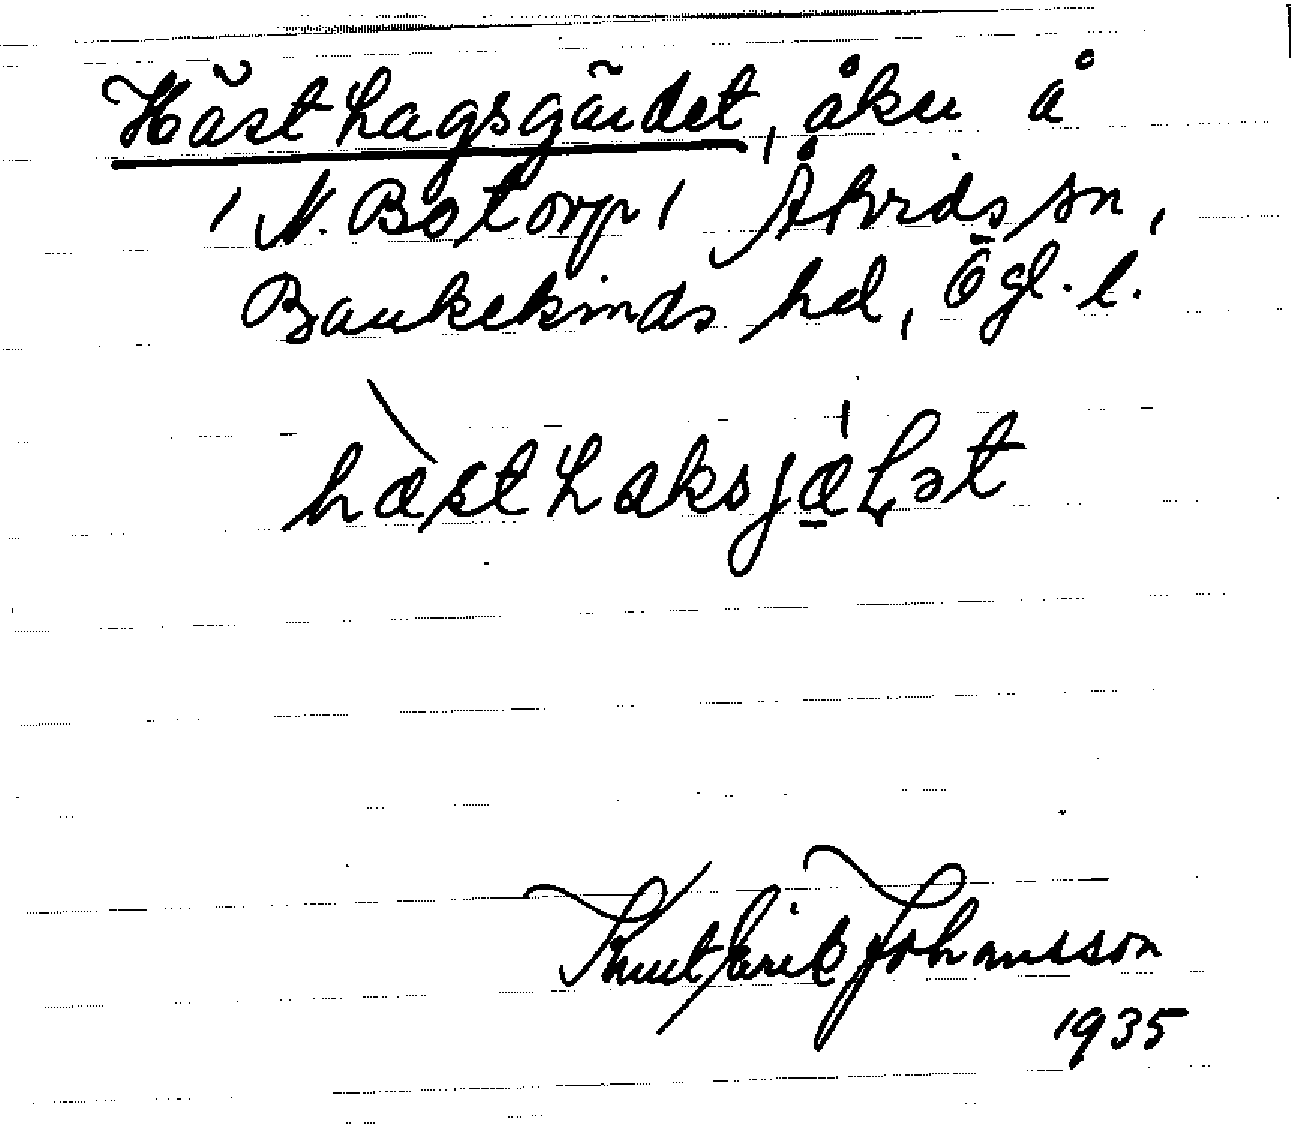 Hästhagsgärdet, åker å
N. Botorp, Åtvids sn,
Bankekinds hd, Ögl. l.
hæsthaksjæḷət
Knut Erik Johansson
1935